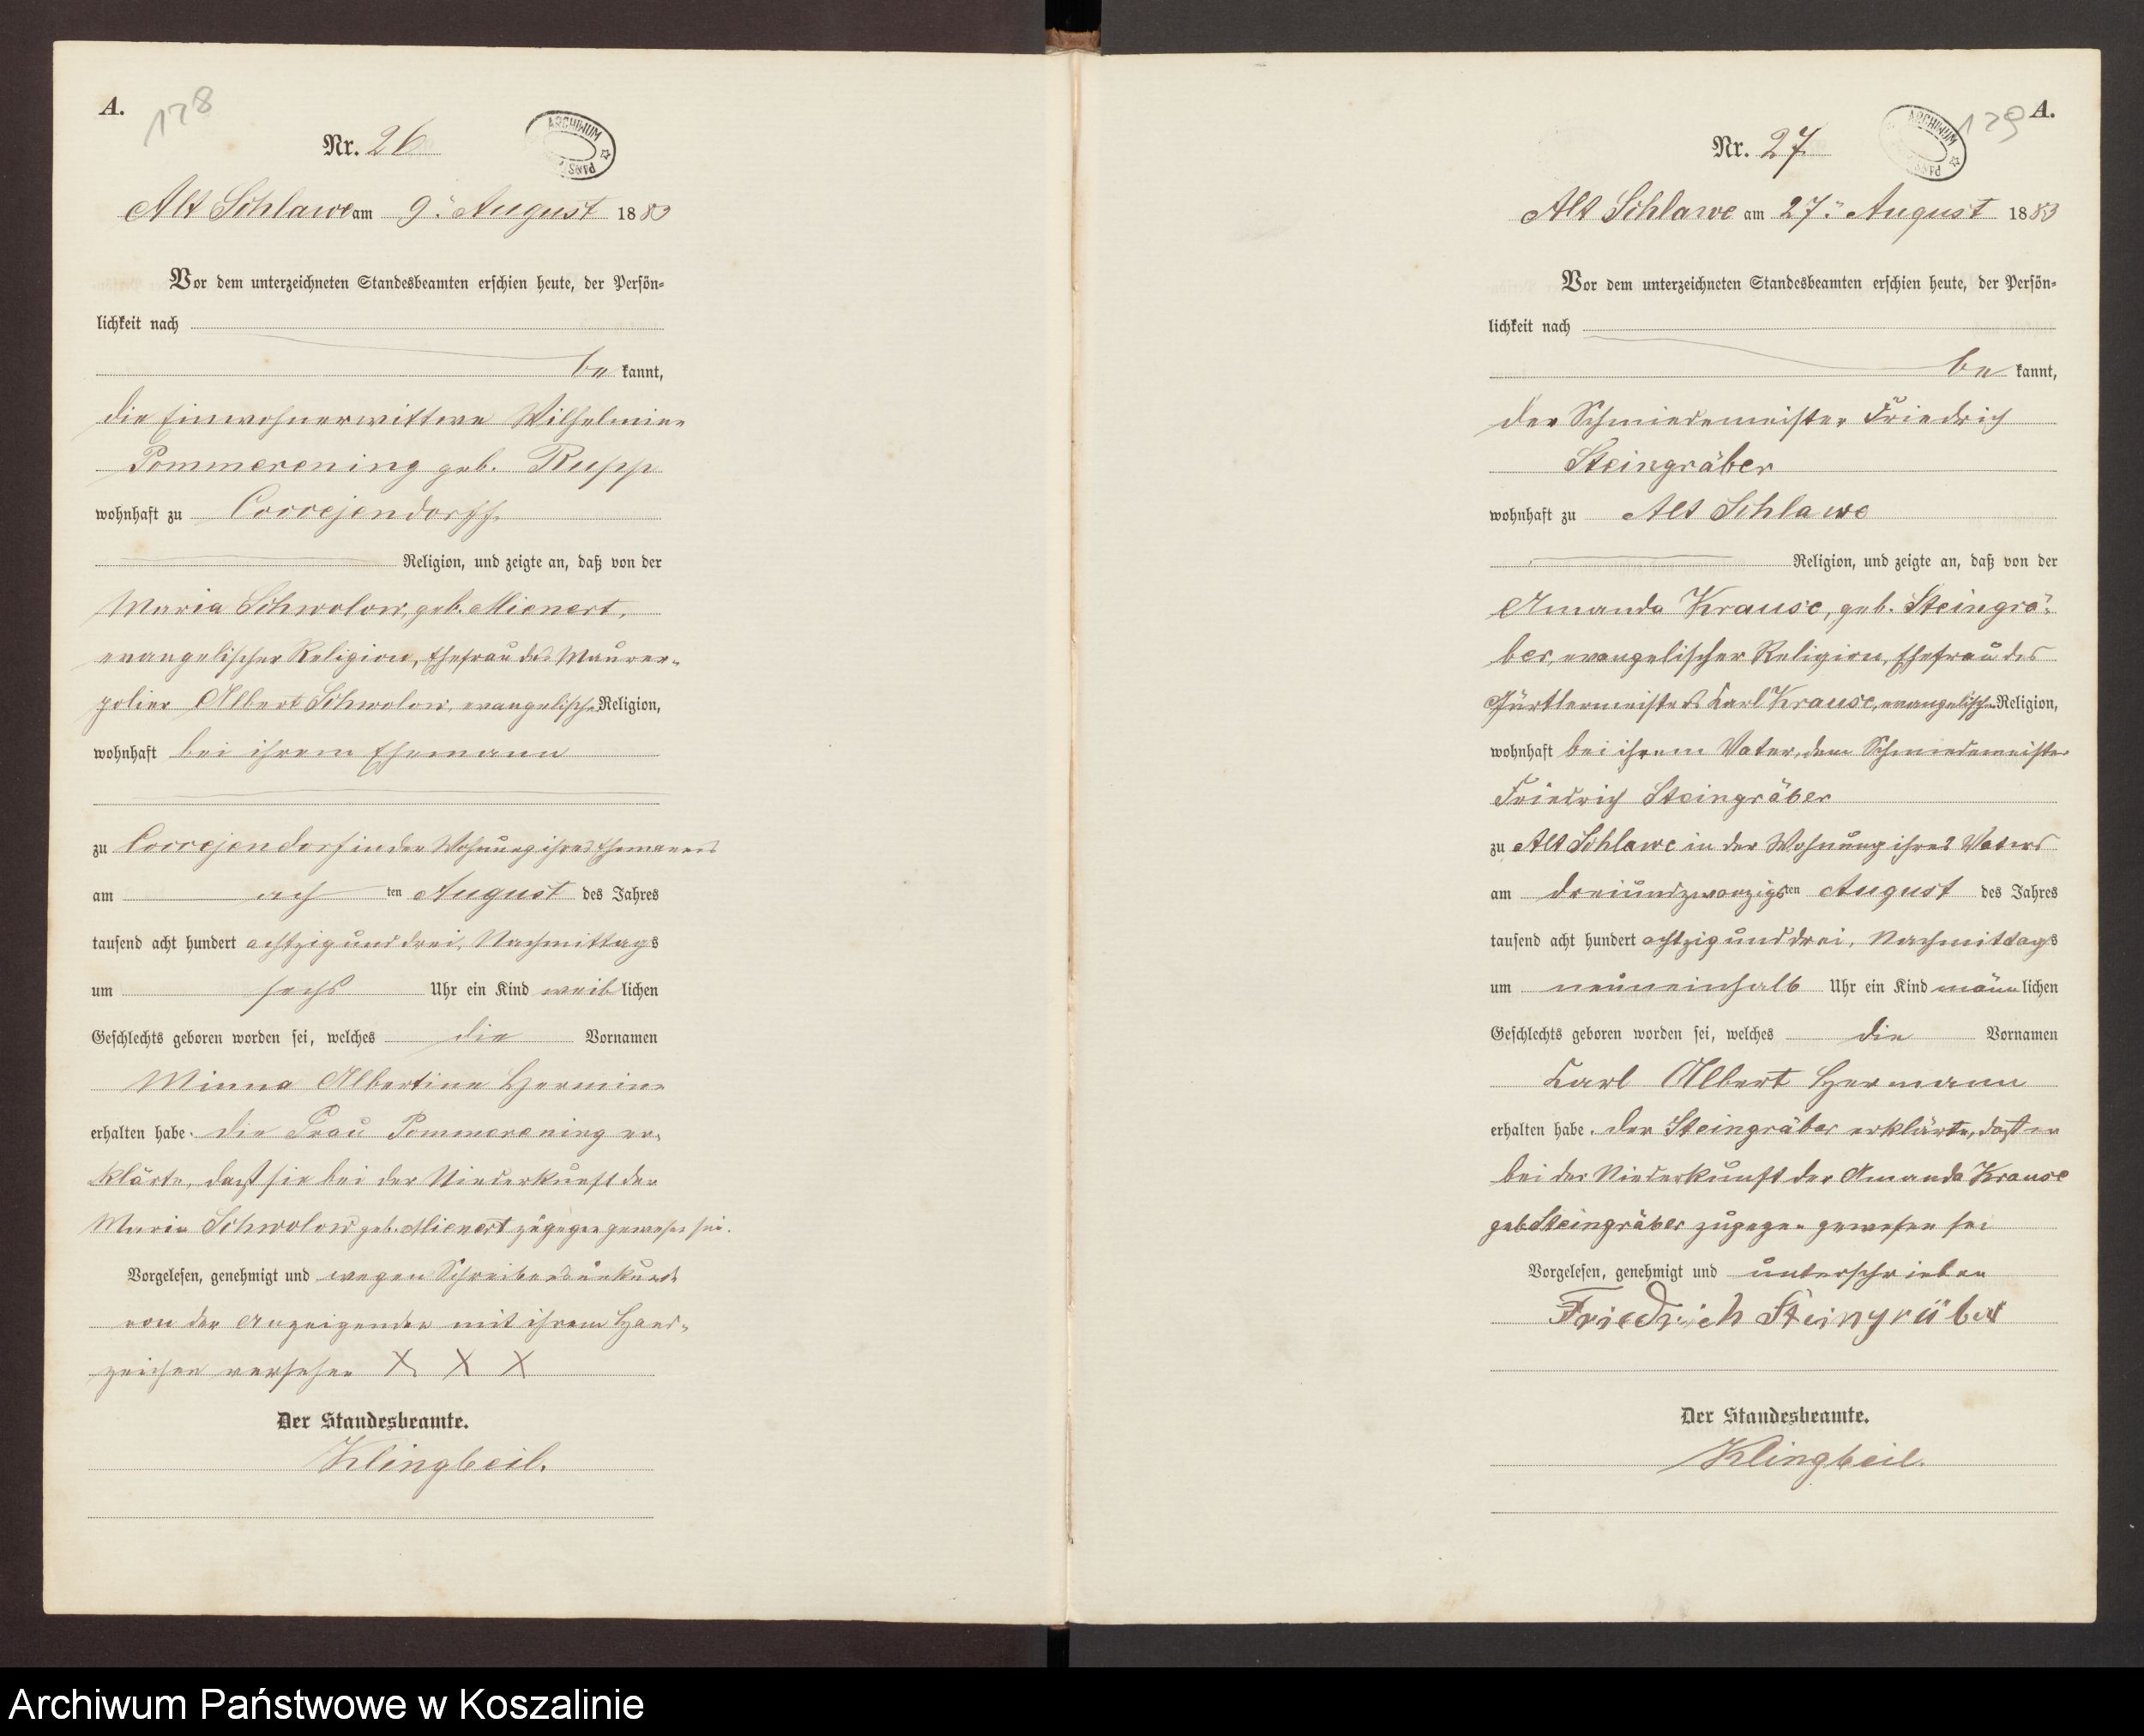 A.
128
Nr. 26
ARCHIWUM
Alt Schlawe am 9. August 1883
Vor dem unterzeichneten Standesbeamten erschien heute, der Persön-
lichkeit nach
be kannt,
die Einwohnerwittwe Wilhelmine
Pommerening geb. Rupp
wohnhaft zu Correjendorff.
Religion, und zeigte an, daß von der
Maria Schwolow, geb. Mienert,
evangelischer Religion, Ehefrau des Maurer-
polier Albert Schwolow, evangelischer Religion,
wohnhaft bei ihrem Ehemann
zu Correjendorf in der Wohnung ihres Ehemannes
am ach ten August des Jahres
tausend acht hundert achtzig und drei, Nachmittags
um sechs Uhr ein Kind weib lichen
Geschlechts geboren worden sei, welches die Vornamen
Minna Albertine Hermine
erhalten habe. Die Frau Pommerening er-
klärte, dass sie bei der Niederkunft der
Maria Schwolow geb. Mienert zugegen gewesen sei.
Vorgelesen, genehmigt und wegen Schreibensunkunde
von der Anzeigenden mit ihrem Hand-
zeichen versehen X X X
Der Standesbeamte.
Klingbeil.
A.
129
Nr. 27
ARCHIWUM
Alt Schlawe am 27. August 1883
Vor dem unterzeichneten Standesbeamten erschien heute, der Persön-
lichkeit nach
be kannt,
der Schmiedemeister Friedrich
Steingräber
wohnhaft zu Alt Schlawe
Religion, und zeigte an, daß von der
Amanda Krause, geb. Steingrä-
ber, evangelischer Religion, Ehefrau des
Gürtlermeisters Karl Krause, evangelischer Religion,
wohnhaft bei ihrem Vater, dem Schmiedemeister
Friedrich Steingräber
zu Alt Schlawe in der Wohnung ihres Vaters
am dreiundzwanzigsten August des Jahres
tausend acht hundert achtzig und drei, Nachmittags
um neuneinhalb Uhr ein Kind männ lichen
Geschlechts geboren worden sei, welches die Vornamen
Karl Albert Hermann
erhalten habe. Der Steingräber erklärte, dass er
bei der Niederkunft der Amanda Krause
geb. Steingräber zugegen gewesen sei
Vorgelesen, genehmigt und unterschrieben
Friedrich Steingräber
Der Standesbeamte.
Klingbeil.
Archiwum Państwowe w Koszalinie